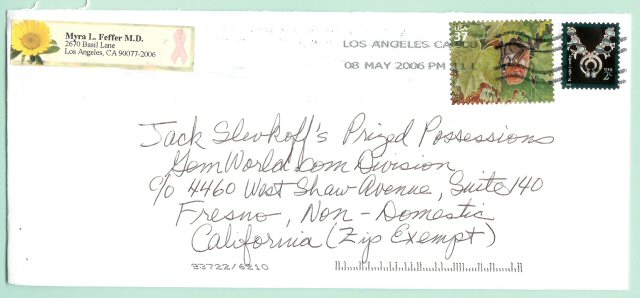 Myra L. Feffer M.D.
2670 Basil Lane
Los Angeles, CA 90077-2006
USA
37
LOS ANGELES CA
08 MAY 2006 PM 11 L
USA
2¢
Jack Slevkoff's Prized Possessions
GemWorld.com Division
c/o 4460 West Shaw Avenue, Suite 140
Fresno, Non-Domestic
California (Zip Exempt)
93722/6210